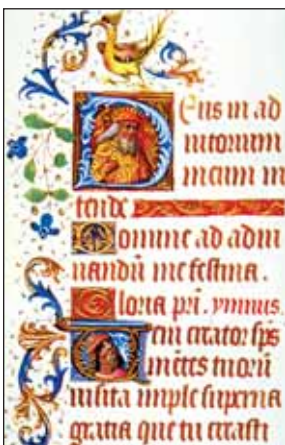 Deus in ad
iutorium
meum in
tende
Domine ad adiu
uandū me festina.
Gloria pri. ymnus.
Veni creator sps
mētes tuorū
uisita imple superna
gratia que tu creasti